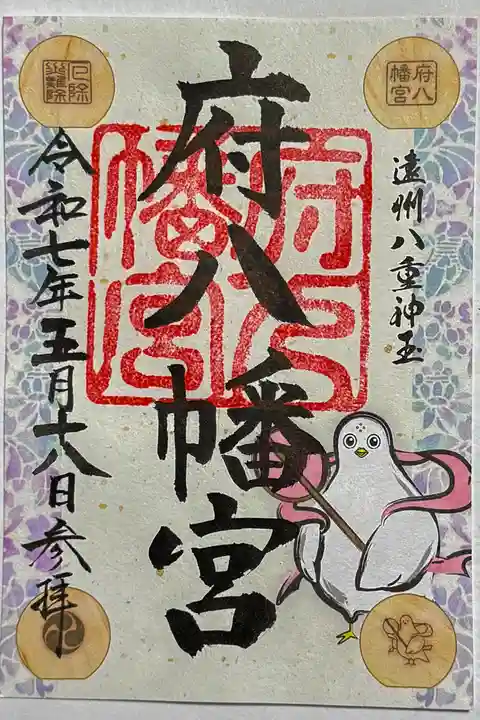 府八幡宮
遠州八重神玉
府八幡宮
府八幡宮
厄除
令和七年五月十八日参拝